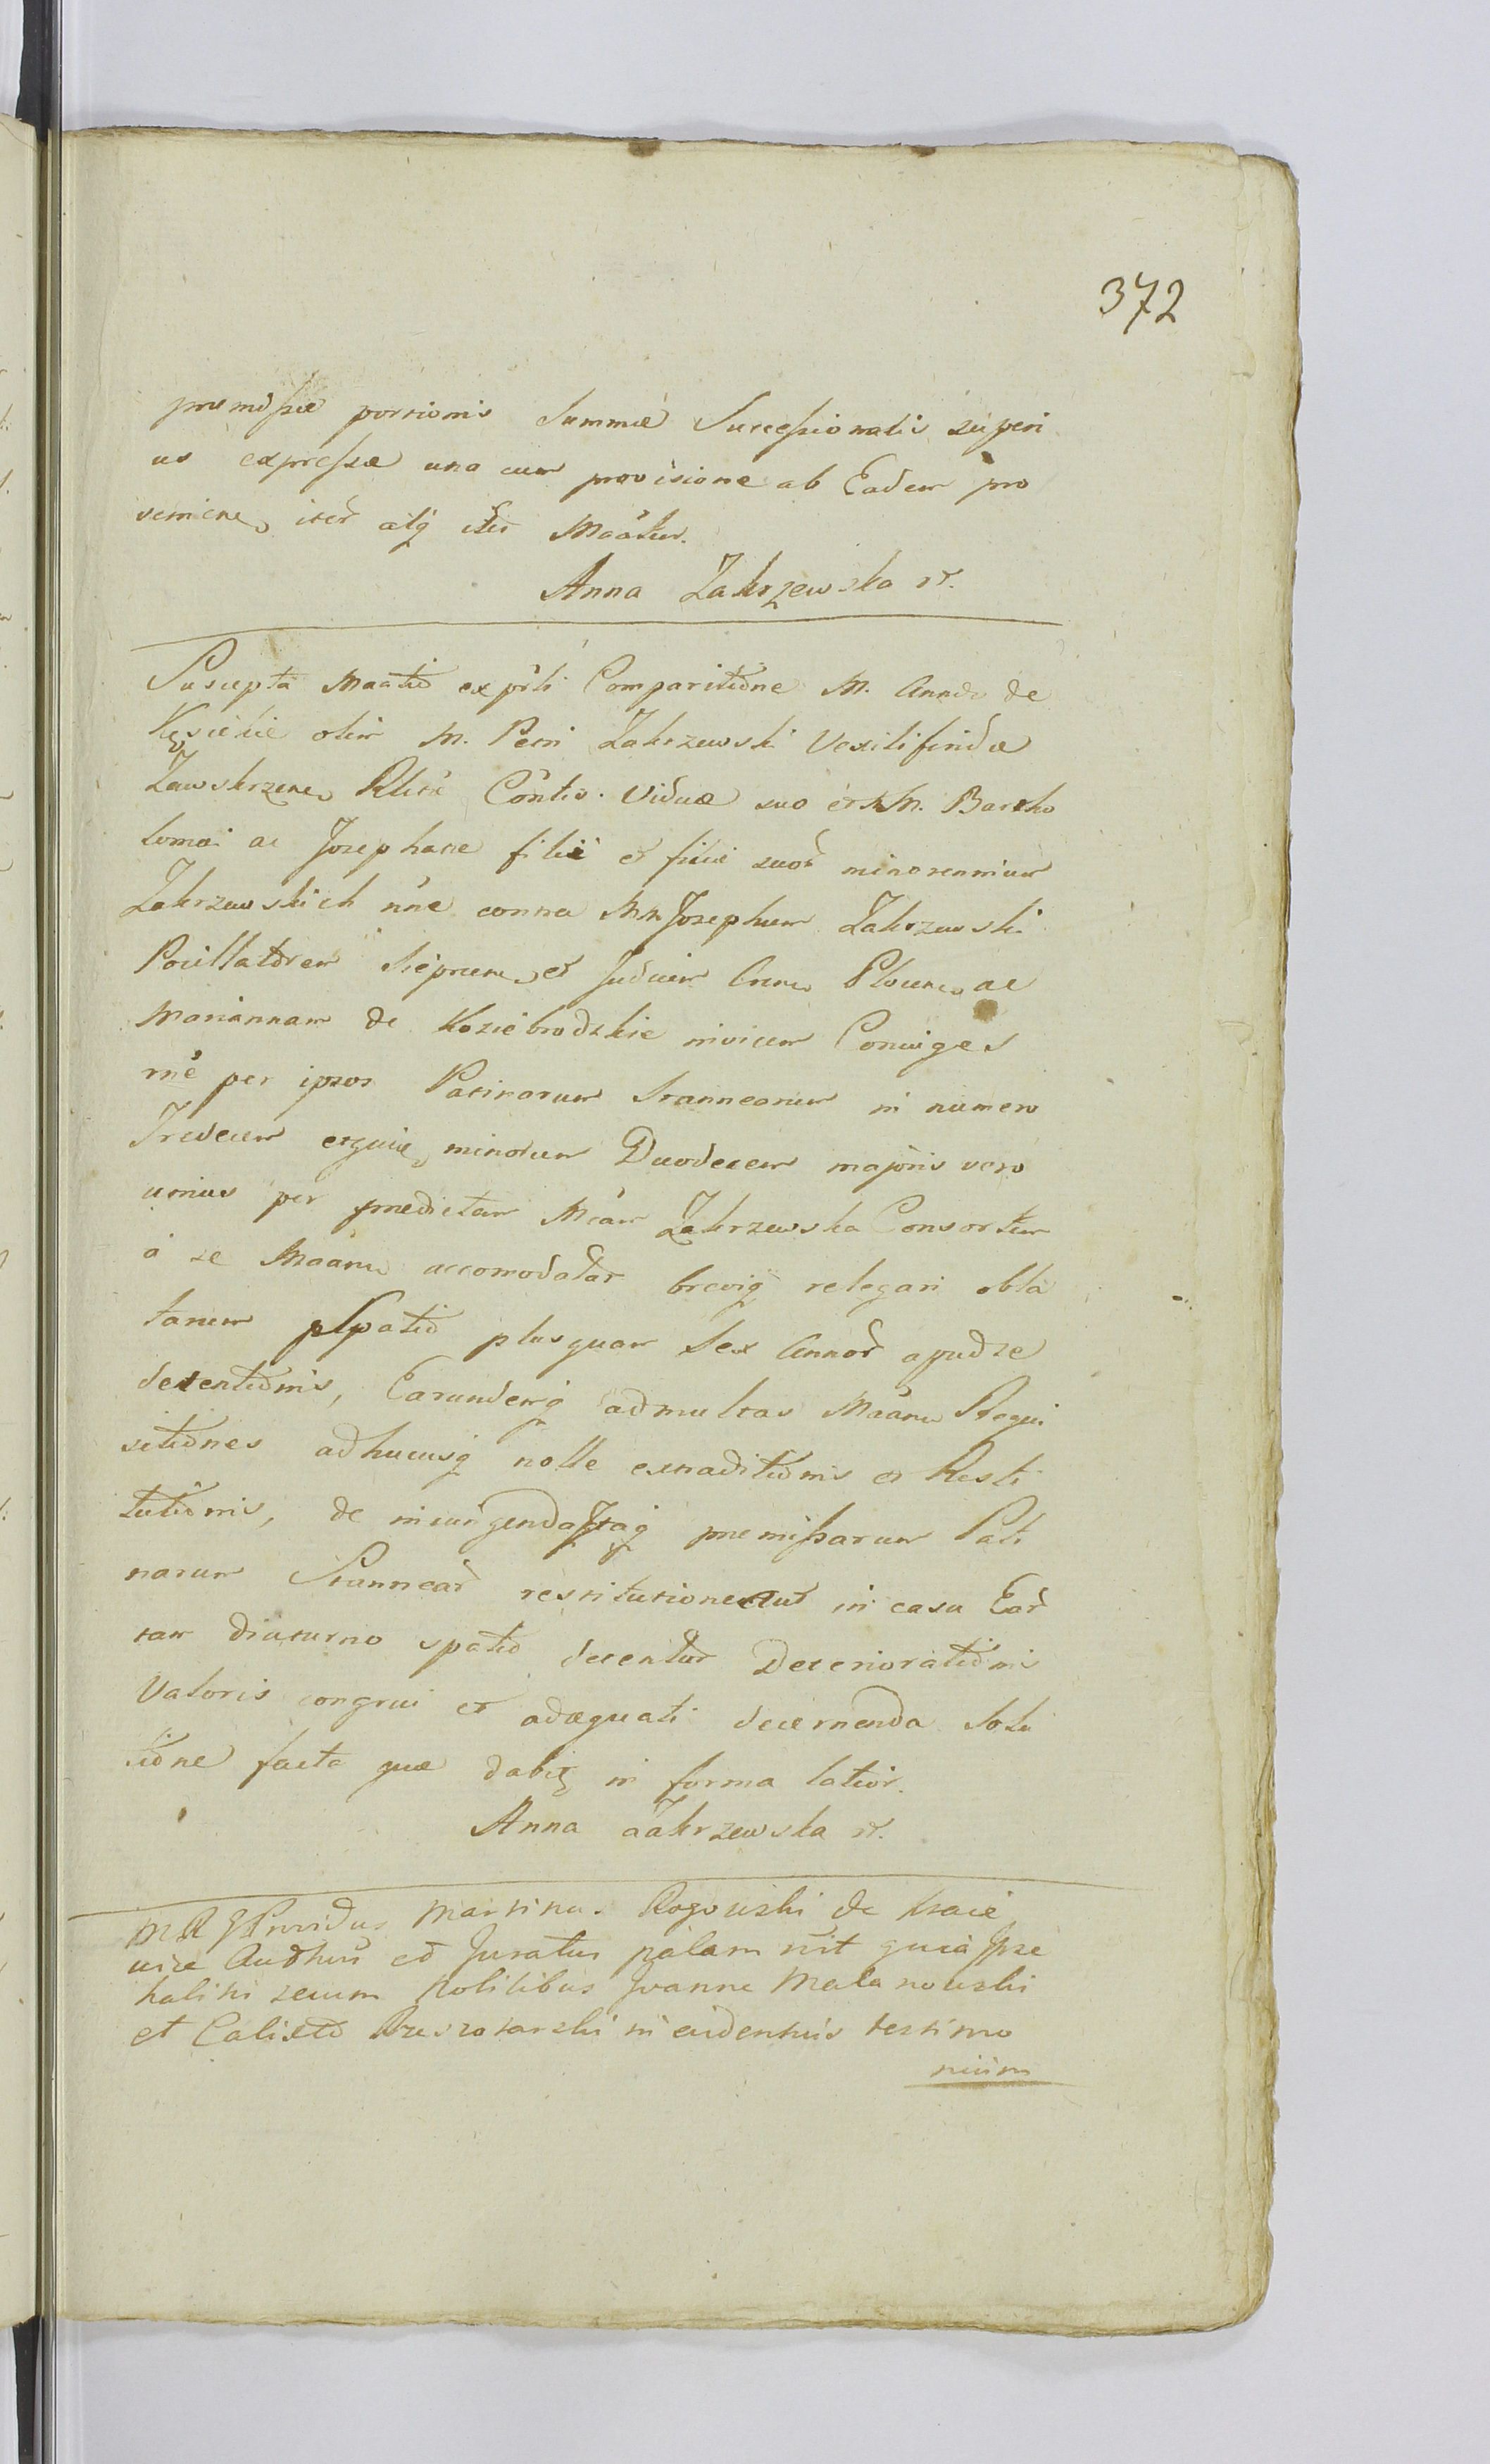 372
præmissæ portionis Summæ Successionalis superi
us expressæ una cum provisione ab Eadem pro
venien iter atq iter Maatur.
Anna Zakrzewska
Suscepta Maatio ex pti Comparitione M. Annæ de
Kęsickie olim M. Petri Zakrzewski Vexiliferidæ
Zawskrzen Relicæ Contis. Viduæ suo et M. Bartho
lomæi ac Josephatæ filii et filiæ suor minorennium
Zakrzewskich nne contra MM Josephum Zakrzewski
Pocillatorem Sieprcen et Judicem Plocen ac
Mariannam de Koziebrodzkie invicem Coniuges
rne per ipsos Patinarum Stannearum in numero
Tredecem minorum Duodecem majoris vero
unius per prædictam Mcam Zakrzewska Consortem
a se Maanu accomodatar breviq relegari obla
tarum spatio plusquam Sex Annor apud se
detentionis, Earundemq ad multas Maanu Requi
sitiones adhucusq nolle extraditionis et Resti
tutionis, de iniungenda Itaq præmissarum Pati
narum Stannear restitutione Aut in casu Ear
tam diuturno spatio detentar Deteriorationis
Valoris congrui et adæquati decernenda Solu
tione facta quæ dabit in forma latior.
Anna Zakrzewska
Providus Martinus Rogowski de
Juratus palam rnit quia Ipse
habitis secum Nobilibus Joanne Malanowski
et Calixto in evidentius testimo
nium